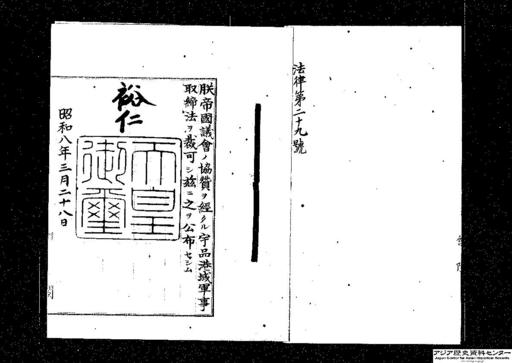 法律第二十九號
朕帝國議會ノ協贊ヲ經タル宇品港域軍事
取締法ヲ裁可シ茲ニ之ヲ公布セシム
裕仁
天皇
御璽
昭和八年三月二十八日
アジア歴史資料センター
Japan Center for Asian Historical Records